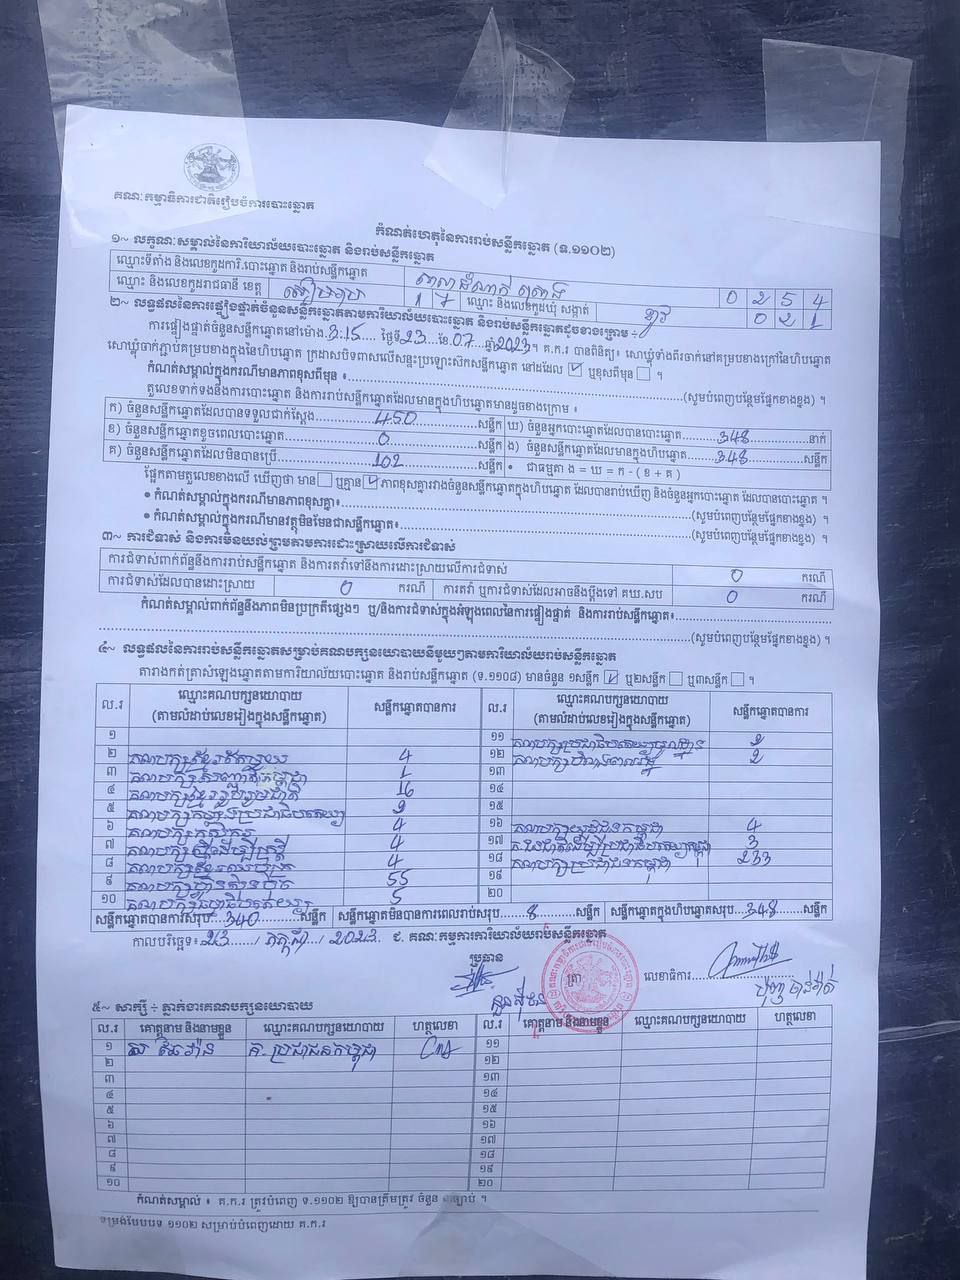 គណៈកម្មាធិការជាតិរៀបចំការបោះឆ្នោត
កំណត់ហេតុនៃការរាប់សន្លឹកឆ្នោត (ទ.១១០២)
១~ លក្ខណៈសម្គាល់នៃការិយាល័យបោះឆ្នោត និងរាប់សន្លឹកឆ្នោត
ឈ្មោះទីតាំង និងលេខកូដការិ.បោះឆ្នោត និងរាប់សន្លឹកឆ្នោត 0 2 5 4
ឈ្មោះ និងលេខកូដរាជធានី ខេត្ត សៀមរាប 1 7 ឈ្មោះ និងលេខកូដឃុំ សង្កាត់ 0 2 1
២~ លទ្ធផលនៃការផ្ទៀងផ្ទាត់ចំនួនសន្លឹកឆ្នោតតាមការិយាល័យបោះឆ្នោត និងរាប់សន្លឹកឆ្នោតដូចខាងក្រោម ÷
ការផ្ទៀងផ្ទាត់ចំនួនសន្លឹកឆ្នោតនៅម៉ោង 3:15 ថ្ងៃទី 23 ខែ 07 ឆ្នាំ 2023។ គ.ក.រ បានពិនិត្យ សោឃ្លុំទាំងពីរចាក់នៅគម្របខាងក្រៅនៃហិបឆ្នោត
សោឃ្លុំចាក់ភ្ជាប់គម្របខាងក្នុងនៃហិបឆ្នោត ក្រដាសបិទពាសលើសន្ទះប្រឡោះស៊កសន្លឹកឆ្នោត នៅដដែល ✓ ឬខុសពីមុន ។
កំណត់សម្គាល់ក្នុងករណីមានភាពខុសពីមុន ៖ (សូមបំពេញបន្ថែមផ្នែកខាងខ្នង) ។
តួលេខទាក់ទងនឹងការបោះឆ្នោត និងការរាប់សន្លឹកឆ្នោតដែលមានក្នុងហិបឆ្នោតមានដូចខាងក្រោម ៖
ក) ចំនួនសន្លឹកឆ្នោតដែលបានទទួលជាក់ស្តែង 450 សន្លឹក ឃ) ចំនួនអ្នកបោះឆ្នោតដែលបានបោះឆ្នោត 348 នាក់
ខ) ចំនួនសន្លឹកឆ្នោតខូចពេលបោះឆ្នោត 0 សន្លឹក ង) ចំនួនសន្លឹកឆ្នោតក្នុងហិបឆ្នោត 348 សន្លឹក
គ) ចំនួនសន្លឹកឆ្នោតដែលមិនបានប្រើ 102 សន្លឹក • ជាធម្មតា ង = ឃ = ក - ( ខ + គ )
ផ្អែកតាមតួលេខខាងលើ ឃើញថា មាន ឬគ្មាន ✓ ភាពខុសគ្នារវាងចំនួនសន្លឹកឆ្នោតក្នុងហិបឆ្នោត ដែលបានរាប់ឃើញ និងចំនួនអ្នកបោះឆ្នោត ដែលបានបោះឆ្នោត ។
• កំណត់សម្គាល់ក្នុងករណីមានភាពខុសគ្នា៖ (សូមបំពេញបន្ថែមផ្នែកខាងខ្នង) ។
• កំណត់សម្គាល់ក្នុងករណីមានវត្ថុមិនមែនជាសន្លឹកឆ្នោត៖ (សូមបំពេញបន្ថែមផ្នែកខាងខ្នង) ។
៣~ ការជំទាស់ និងការមិនយល់ព្រមតាមការដោះស្រាយលើការជំទាស់
ការជំទាស់ពាក់ព័ន្ធនឹងការរាប់សន្លឹកឆ្នោត និងការតវ៉ាទៅនឹងការដោះស្រាយលើការជំទាស់ 0 ករណី
ការជំទាស់ដែលបានដោះស្រាយ 0 ករណី ការតវ៉ា ឬការជំទាស់ដែលអាចនឹងប្តឹងទៅ គឃ.សប 0 ករណី
កំណត់សម្គាល់ពាក់ព័ន្ធនឹងភាពមិនប្រក្រតីផ្សេងៗ ឬ/និងការជំទាស់ក្នុងអំឡុងពេលនៃការផ្ទៀងផ្ទាត់ និងការរាប់សន្លឹកឆ្នោត៖
(សូមបំពេញបន្ថែមផ្នែកខាងខ្នង) ។
៤~ លទ្ធផលនៃការរាប់សន្លឹកឆ្នោតសម្រាប់គណបក្សនយោបាយនីមួយៗតាមការិយាល័យរាប់សន្លឹកឆ្នោត
តារាងកត់ត្រាសំឡេងឆ្នោតតាមការិយាល័យបោះឆ្នោត និងរាប់សន្លឹកឆ្នោត (ទ.១១០៨) មានចំនួន ១សន្លឹក ✓ ឬ២សន្លឹក ឬ៣សន្លឹក ។
ល.រ ឈ្មោះគណបក្សនយោបាយ (តាមលំដាប់លេខរៀងក្នុងសន្លឹកឆ្នោត) សន្លឹកឆ្នោតបានការ ល.រ ឈ្មោះគណបក្សនយោបាយ (តាមលំដាប់លេខរៀងក្នុងសន្លឹកឆ្នោត) សន្លឹកឆ្នោតបានការ
១ ១១
២ 4 ១២ 2
៣ 1 ១៣
៤ គណបក្សខ្មែររួបរួមជាតិ 16 ១៤
៥ ១៥
៦ 4 ១៦ គណបក្សយុវជនកម្ពុជា 4
៧ 4 ១៧ 3
៨ 4 ១៨ គណបក្សប្រជាជនកម្ពុជា 233
៩ គណបក្សហ៊្វុនស៊ិនប៉ិច 55 ១៩
១០ 5 ២០
សន្លឹកឆ្នោតបានការសរុប 340 សន្លឹក សន្លឹកឆ្នោតមិនបានការពេលរាប់សរុប 8 សន្លឹក សន្លឹកឆ្នោតក្នុងហិបឆ្នោតសរុប 348 សន្លឹក
កាលបរិច្ឆេទ៖ 23 / កក្កដា / 2023 ជ. គណៈកម្មការការិយាល័យរាប់សន្លឹកឆ្នោត
ប្រធាន ត្រា លេខាធិការ
៥~ សាក្សី ÷ ភ្នាក់ងារគណបក្សនយោបាយ
ល.រ គោត្តនាម និងនាមខ្លួន ឈ្មោះគណបក្សនយោបាយ ហត្ថលេខា ល.រ គោត្តនាម និងនាមខ្លួន ឈ្មោះគណបក្សនយោបាយ ហត្ថលេខា
១ គ. ប្រជាជនកម្ពុជា ១១
២ ១២
៣ ១៣
៤ ១៤
៥ ១៥
៦ ១៦
៧ ១៧
៨ ១៨
៩ ១៩
១០ ២០
កំណត់សម្គាល់ ៖ គ.ក.រ ត្រូវបំពេញ ទ.១១០២ ឱ្យបានត្រឹមត្រូវ ចំនួន ច្បាប់ ។
ទម្រង់បែបបទ ១១០២ សម្រាប់បំពេញដោយ គ.ក.រ